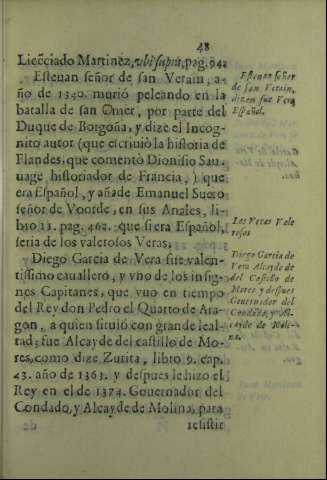 48
Licenciado Martinez, ubi supra, pag. 94.
Estevan señor de san Verain, a-
ño de 1340. muriò peleando en la
batalla de san Omer, por parte del
Duque de Borgoña, y dize el Incog-
nito autor (que escriuiò la historia de
Flandes, que comentò Dionisio Sau-
uage historiador de Francia, ) que
era Español, y añade Emanuel Suero
señor de Voorde, en sus Anales, li-
bro 11. pag. 462. que si era Español,
seria de los valerosos Veras.
Diego Garcia de Vera fue valen-
tissimo cauallero, y vno de los insig-
nes Capitanes, que vuo en tiempo
del Rey don Pedro el Quarto de Ara-
gon, a quien siruiò con grande leal-
tad; fue Alcayde del castillo de Mo-
res, como dize Zurita, libro 9. cap.
43. año de 1363. y despues le hizo el
Rey en el de 1374. Gouernador del
Condado, y Alcayde de Molina, para
resistir
Estevan señor
de san Verain,
dizen fue Vera
Español.
Los Veras Vale
rosos
Diego Garcia de
Vera Alcayde de
del Castillo de
Mores y despues
Gouernador del
Condado, y Al-
cayde de Moli-
na.